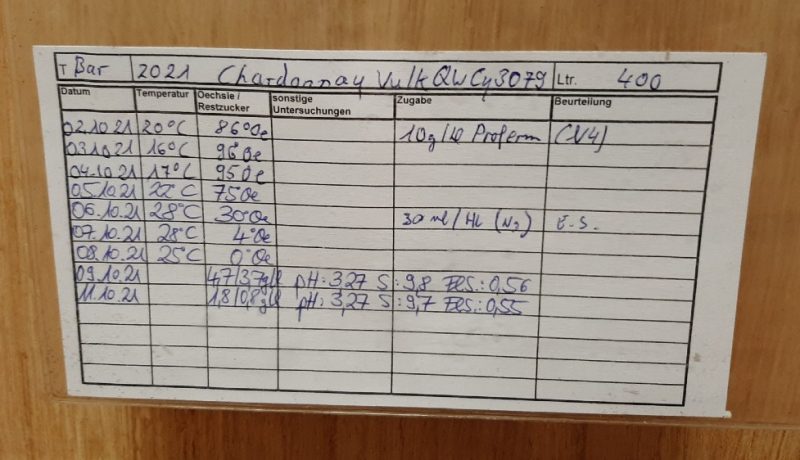 T Bar 2021 Chardonnay Vulk QW Cy3079 Ltr. 400
Datum Temperatur Oechsle / Restzucker sonstige Untersuchungen Zugabe Beurteilung
02.10.21 20°C 86°Oe 10g/Hl Proferm (V4)
03.10.21 16°C 96°Oe
04.10.21 17°C 95°Oe
05.10.21 22°C 75°Oe
06.10.21 28°C 30°Oe 30 ml/Hl (N2) E.S.
07.10.21 28°C 4°Oe
08.10.21 25°C 0°Oe
09.10.21 4,7/3,7g/l pH: 3,27 S: 9,8 FES.: 0,56
11.10.21 1,8/0,8g/l pH: 3,27 S: 9,7 FES.: 0,55